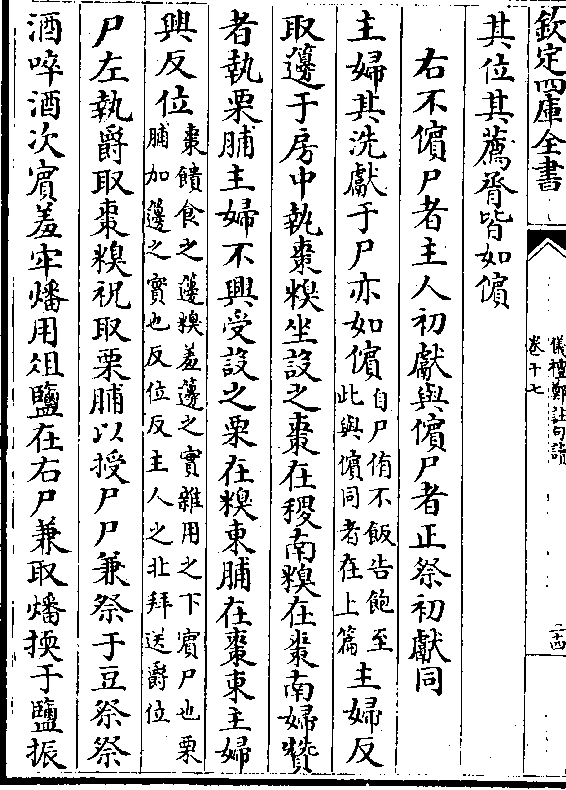 欽定四庫全書
儀禮鄭註句讀
卷十七
二十四
其位其薦脀皆如儐
右不儐尸者主人初獻與儐尸者正祭初獻同
主婦其洗獻于尸亦如儐自尸侑不飯告飽至此與儐同者在上篇主婦反
取籩于房中執棗糗坐設之棗在稷南糗在棗南婦贊
者執栗脯主婦不興受設之栗在糗東脯在棗東主婦
興反位棗饋食之籩糗羞籩之實雜用之下賓尸也栗脯加籩之實也反位反主人之北拜送爵位
尸左執爵取棗糗祝取栗脯以授尸尸兼祭于豆祭祭
酒啐酒次賓羞牢燔用俎鹽在右尸兼取燔擩于鹽振